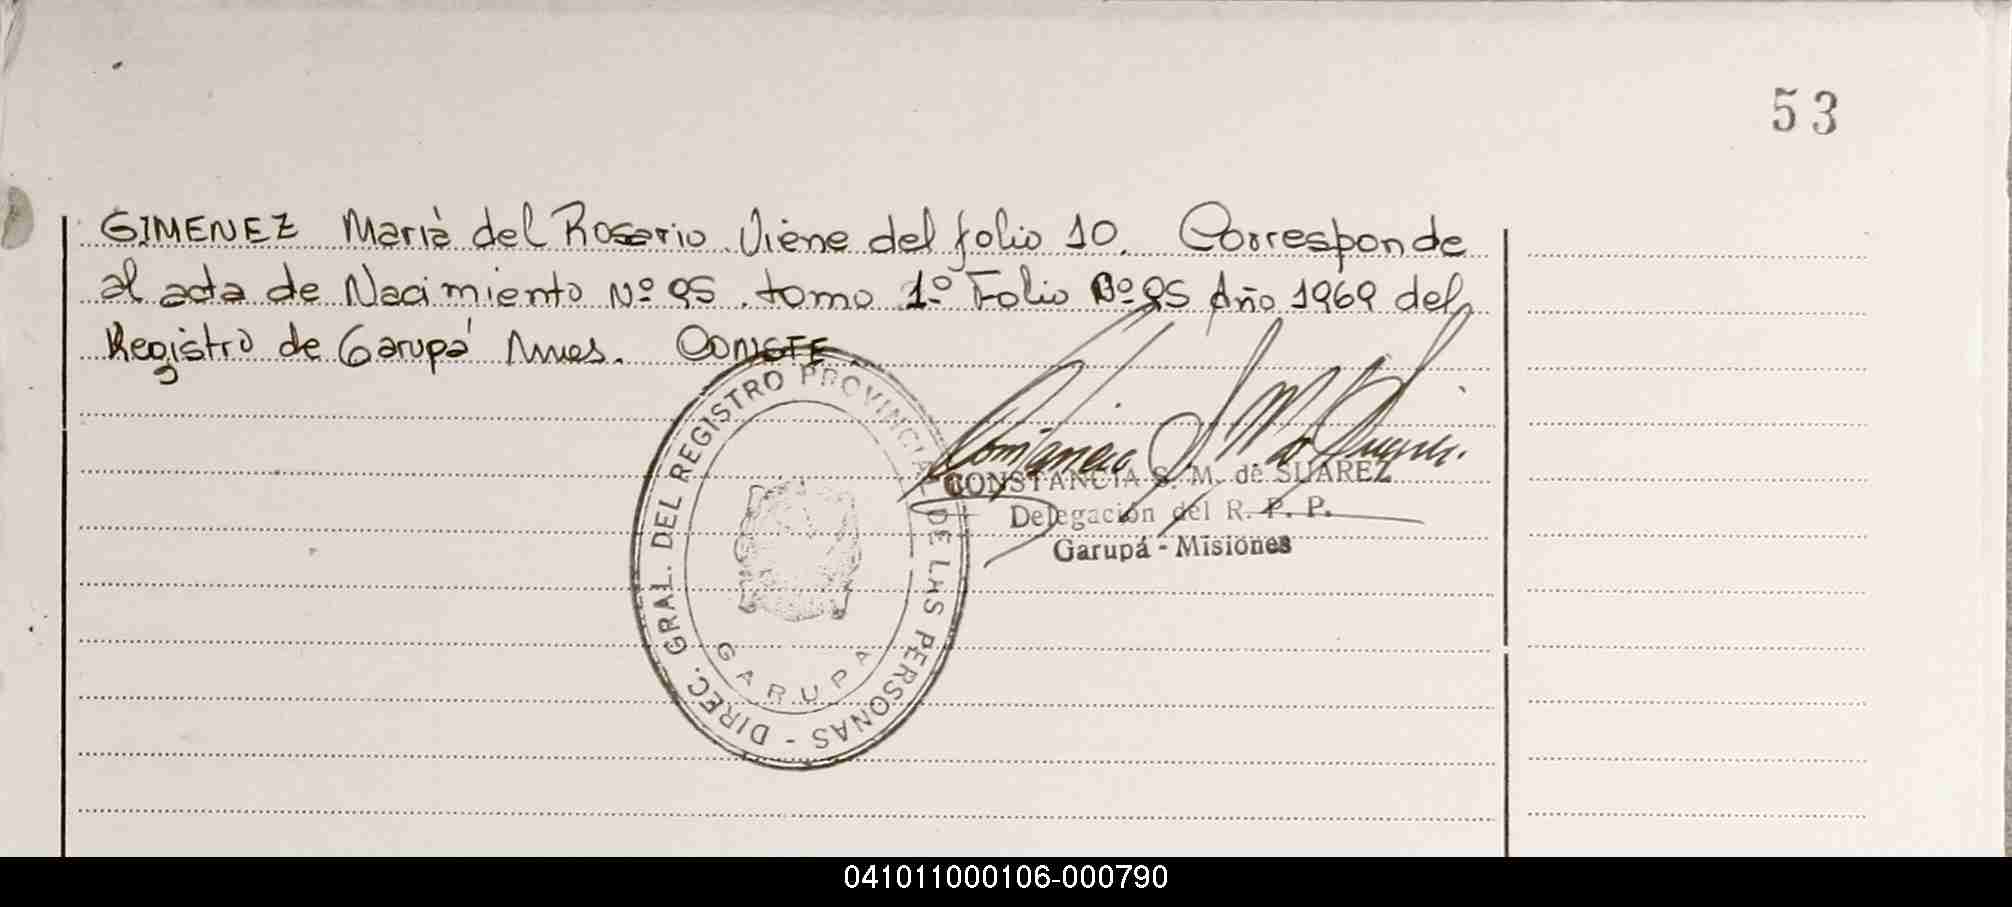 53
GIMENEZ Marià del Rosario Viene del folio 10. Corresponde
al acta de Nacimiento Nº 95. tomo 1º Folio Nº 95 Año 1969 del
Registro de Garupá Mnes. CONSTE
CONSTANCIA S. M. de SUAREZ
Delegación del R. P. P.
Garupá - Misiones
DIREC. GRAL. DEL REGISTRO PROVINCIAL DE LAS PERSONAS -
GARUPA
041011000106-000790